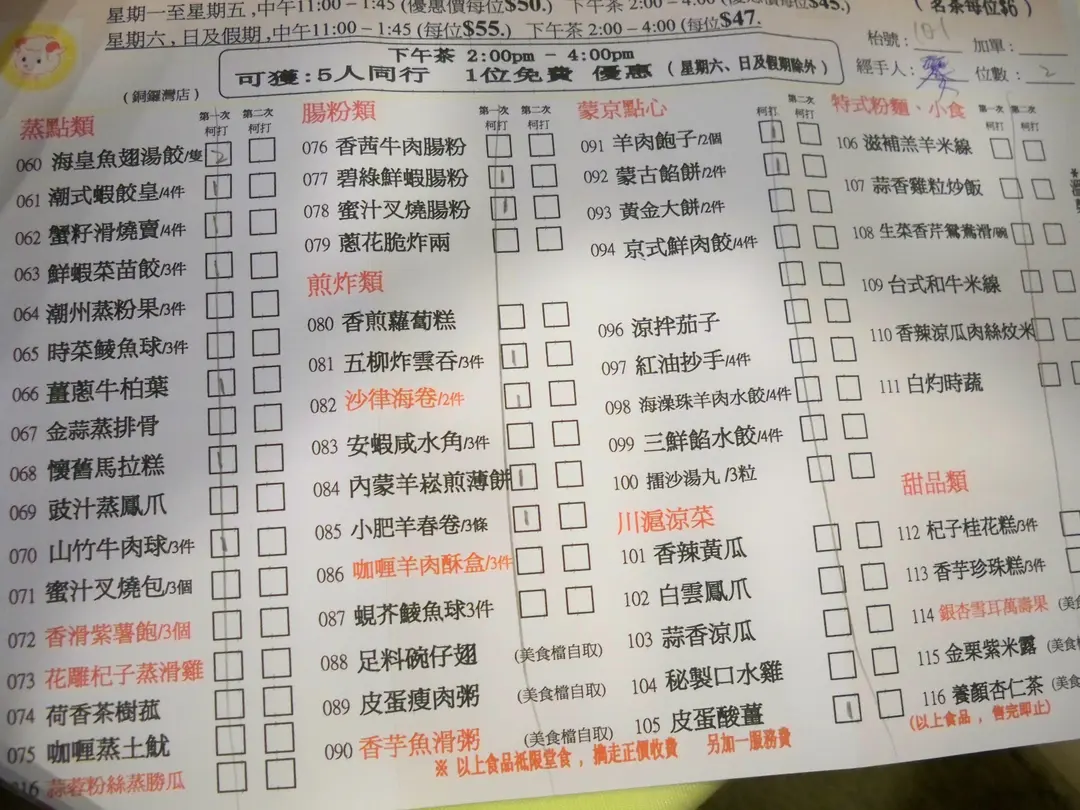 星期一至星期五,中午11:00 - 1:45 (優惠價每位$50.) 下午茶 2:00 - 4:00 (優惠價每位$45.)
星期六,日及假期,中午11:00 - 1:45 (每位$55.) 下午茶 2:00 - 4:00 (每位$47.
(名茶每位$6)
枱號: 101 加單:
經手人: 位數: 2
下午茶 2:00pm - 4:00pm
可獲:5人同行 1位免費 優惠 (星期六、日及假期除外)
(銅鑼灣店)
蒸點類 第一次 柯打 第二次 柯打
060 海皇魚翅湯餃/隻 2
061 潮式蝦餃皇/4件 1
062 蟹籽滑燒賣/4件 1
063 鮮蝦菜苗餃/3件 1
064 潮州蒸粉果/3件
065 時菜鯪魚球/3件
066 薑蔥牛柏葉 1
067 金蒜蒸排骨
068 懷舊馬拉糕 1
069 豉汁蒸鳳爪
070 山竹牛肉球/3件 1
071 蜜汁叉燒包/3個
072 香滑紫薯飽/3個
073 花雕杞子蒸滑雞
074 荷香茶樹菰
075 咖喱蒸土魷
116 蒜蓉粉絲蒸勝瓜
腸粉類 第一次 柯打 第二次 柯打
076 香茜牛肉腸粉
077 碧綠鮮蝦腸粉 1
078 蜜汁叉燒腸粉 1
079 蔥花脆炸兩
煎炸類
080 香煎蘿蔔糕
081 五柳炸雲吞/3件 1
082 沙律海卷/2件 1
083 安蝦咸水角/3件
084 內蒙羊崧煎薄餅 1
085 小肥羊春卷/3條 1
086 咖喱羊肉酥盒/3件
087 蜆芥鯪魚球3件
088 足料碗仔翅 (美食檔自取)
089 皮蛋瘦肉粥 (美食檔自取)
090 香芋魚滑粥 (美食檔自取)
蒙京點心 柯打 第二次 柯打
091 羊肉飽子/2個 1
092 蒙古餡餅/2件 1
093 黃金大餅/2件
094 京式鮮肉餃/4件
096 涼拌茄子
097 紅油抄手/4件
098 海澡珠羊肉水餃/4件
099 三鮮餡水餃/4件
100 擂沙湯丸 /3粒
川滬涼菜
101 香辣黃瓜
102 白雲鳳爪
103 蒜香涼瓜
104 秘製口水雞
105 皮蛋酸薑 1
特式粉麵、小食 第一次 柯打 第二次 柯打
106 滋補羔羊米線
107 蒜香雞粒炒飯
108 生菜香芹鴛鴦滑/碗
109 台式和牛米線
110 香辣涼瓜肉絲炆米
111 白灼時蔬
甜品類
112 杞子桂花糕/3件
113 香芋珍珠糕/3件
114 銀杏雪耳萬壽果 (美
115 金栗紫米露 (美食
116 養顏杏仁茶 (美
(以上食品，售完即止)
※ 以上食品祗限堂食，擕走正價收費 另加一服務費